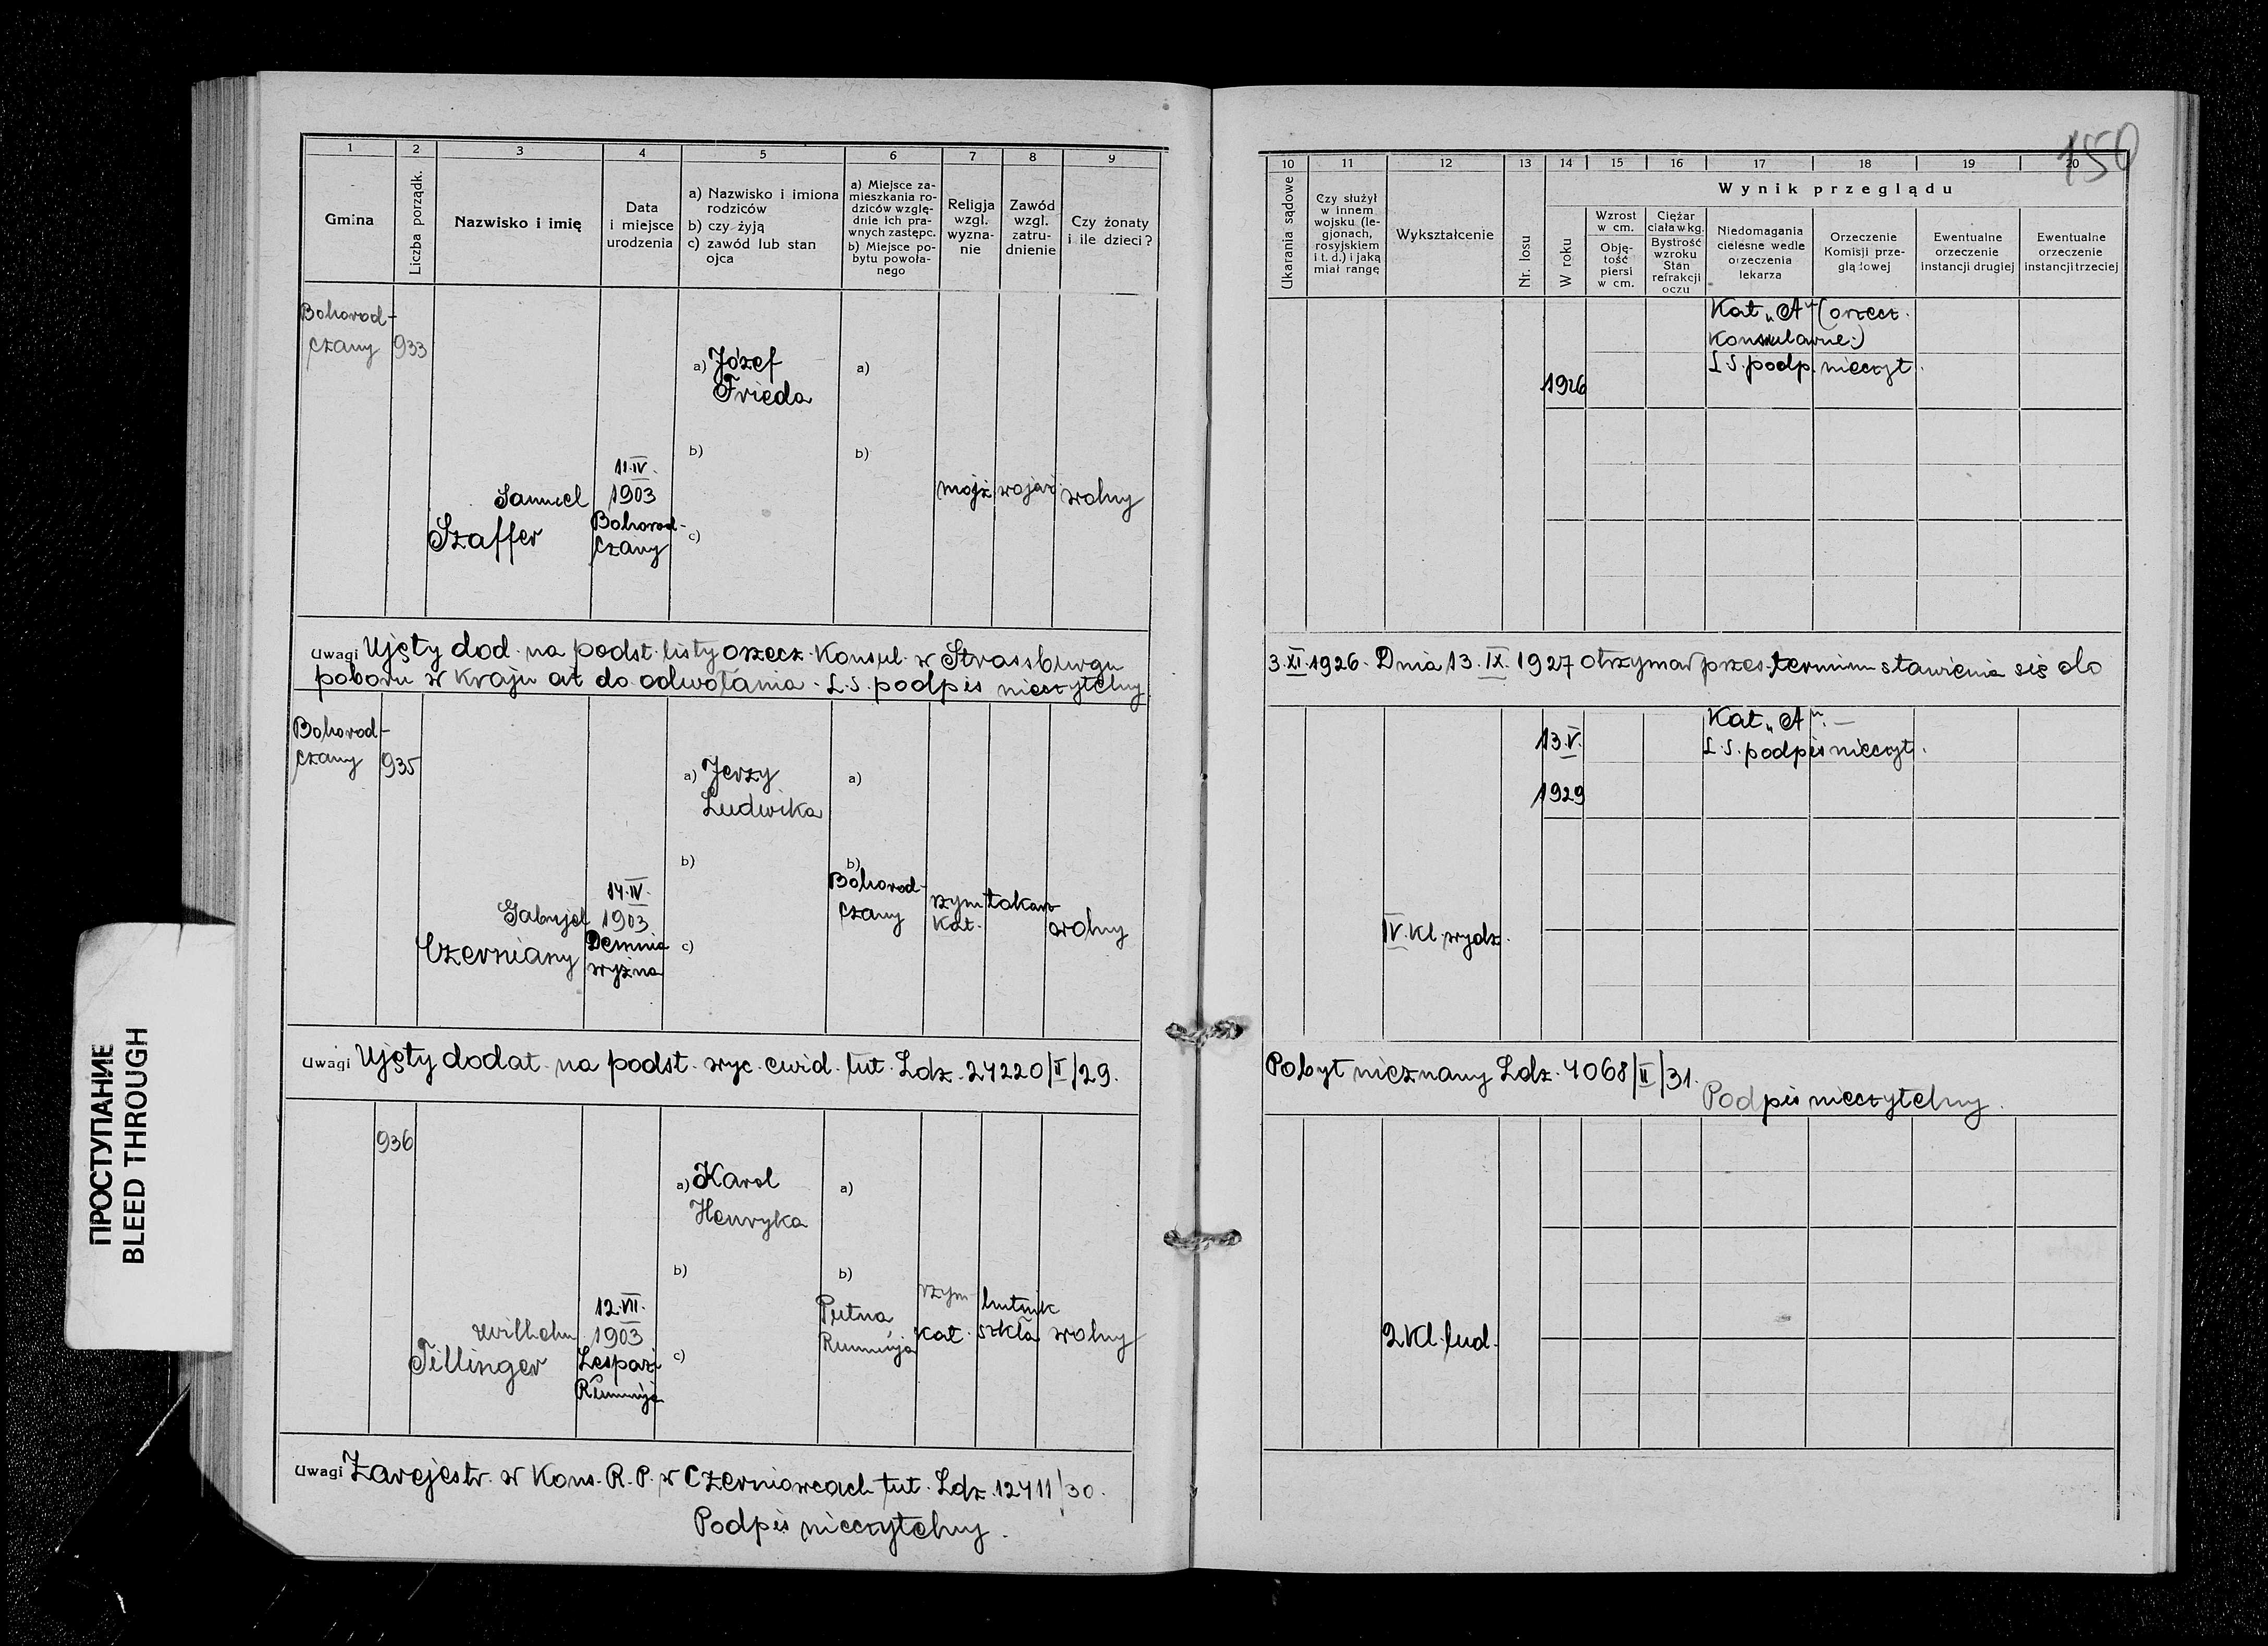 150
1
2
3
4
5
6
7
8
9
Gmina
Liczba porządk.
Nazwisko i imię
Data
i miejsce
urodzenia
a) Nazwisko i imiona
rodziców
b) czy żyją
c) zawód lub stan
ojca
a) Miejsce za-
mieszkania ro-
dziców wzglę-
dnie ich pra-
wnych zastępc.
b) Miejsce po-
bytu powoła-
nego
Religja
wzgl.
wyzna-
nie
Zawód
wzgl.
zatru-
dnienie
Czy żonaty
i ile dzieci?
Bohorod-
czany
933
Samuel
Szaffer
11.IV.
1903
Bohorod-
czany
a) Józef
Frieda
b)
c)
a)
b)
mojż
wojaż
wolny
Uwagi Ujęty dod. na podst. listy orzecz. Konsul. w Strassburgu
poboru w kraju aż do odwołania. L.S. podpis nieczytelny
Bohorod-
czany
935
Gabryel
Czerniany
14.IV.
1903
Demnia
wyżna
a) Jerzy
Ludwika
b)
c)
a)
b)
Bohorod-
czany
rzym
kat.
tokarz
wolny
Uwagi Ujęty dodat. na podst. wyc. ewid. tut. Ldz. 24220/II/29.
936
Wilhelm
Tillinger
12.VII.
1903
Lespezi
Rumunja
a) Karol
Henryka
b)
c)
a)
b)
Putna
Rumunja
rzym
kat.
hutnik
szkła
wolny
Uwagi Zarejestr. w Kons. R. P. w Czerniowcach tut. Ldz. 12411/30.
Podpis nieczytelny.
10
11
12
13
14
15
16
17
18
19
20
Ukarania sądowe
Czy służył
w innem
wojsku (le-
gjonach,
rosyjskiem
i t. d.) i jaką
miał rangę
Wykształcenie
Nr. losu
Wynik przeglądu
W roku
Wzrost
w cm.
Obję-
tość
piersi
w cm.
Ciężar
ciała w kg.
Bystrość
wzroku
Stan
refrakcji
oczu
Niedomagania
cielesne wedle
orzeczenia
lekarza
Orzeczenie
Komisji prze-
glądowej
Ewentualne
orzeczenie
instancji drugiej
Ewentualne
orzeczenie
instancji trzeciej
1926
Kat. „A” (orzecz.
Konsularne.)
L.S. podp. nieczyt.
3.XI.1926. Dnia 13.IX.1927 otrzymał przes. termin stawienia się do
IV. kl. wydz.
13.V.
1929
Kat. „A”. —
L.S. podpis nieczyt.
Pobyt nieznany Ldz. 4068/II/31.
Podpis nieczytelny.
2 kl. lud.
ПРОСТУПАНИЕ
BLEED THROUGH